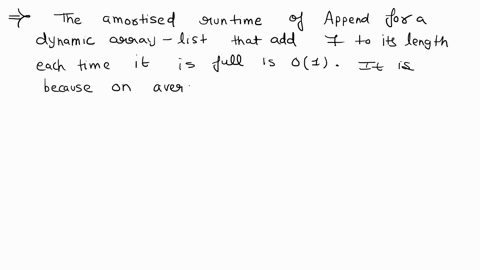 ⇒ The amortised runtime of Append for a
dynamic array-list that add 1 to its length
each time it is full is O(1). It is
because on aver